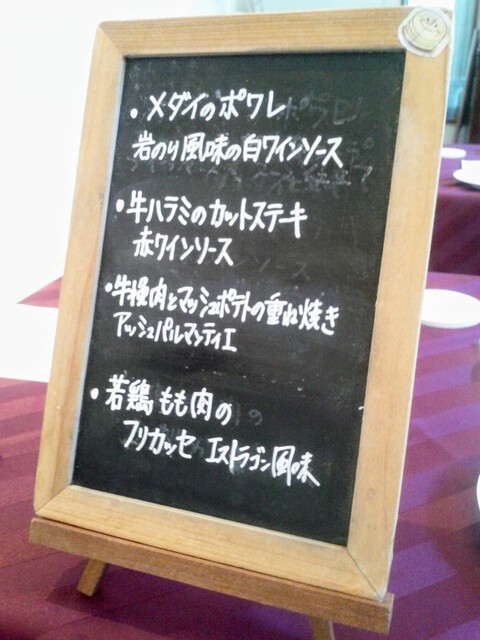 ・メダイのポワレ
岩のり風味の白ワインソース
・牛ハラミのカットステーキ
赤ワインソース
・牛挽肉とマッシュポテトの重ね焼き
アッシュパルマンティエ
・若鶏もも肉の
フリカッセ エストラゴン風味